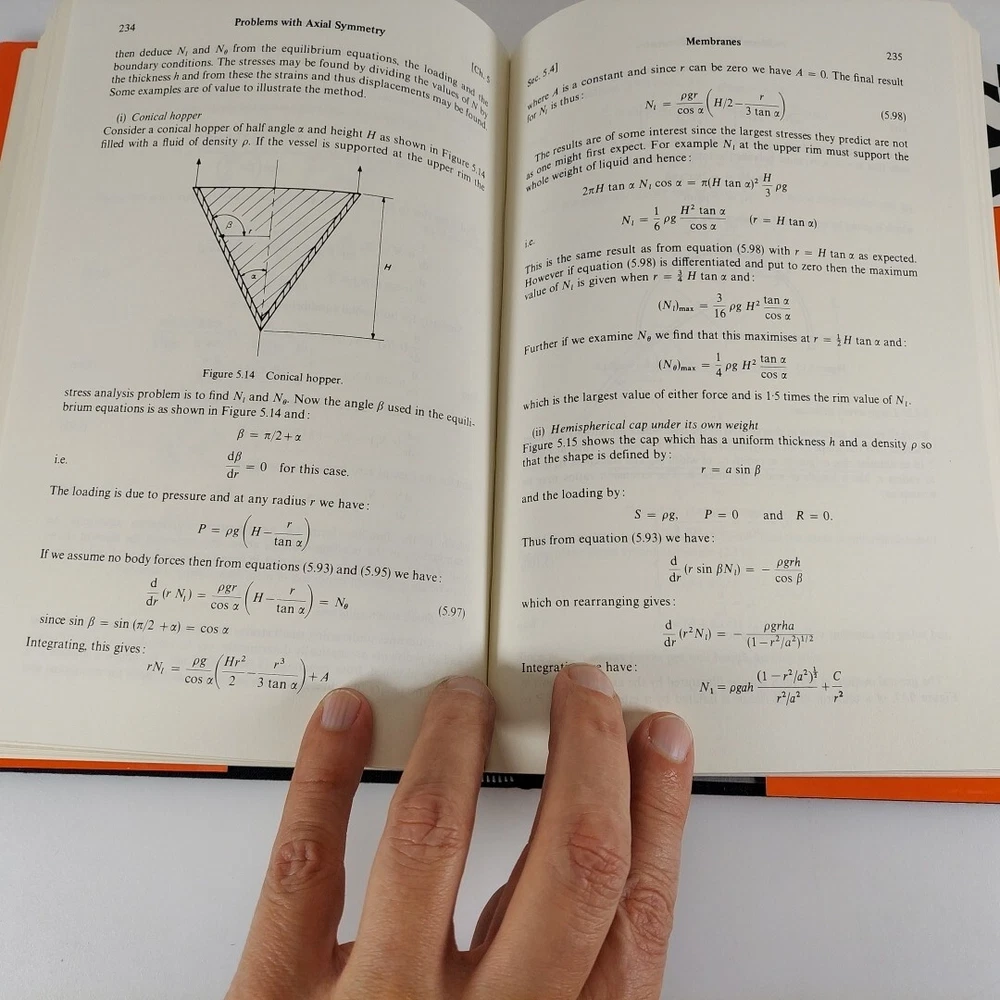 234
Problems with Axial Symmetry
[Ch. 5
then deduce Nₗ and N_θ from the equilibrium equations, the loading and the
boundary conditions. The stresses may be found by dividing the values of N by
the thickness h and from these the strains and thus displacements may be found.
Some examples are of value to illustrate the method.
(i) Conical hopper
Consider a conical hopper of half angle α and height H as shown in Figure 5.14
filled with a fluid of density ρ. If the vessel is supported at the upper rim the
β
r
α
H
Figure 5.14 Conical hopper.
stress analysis problem is to find Nₗ and N_θ. Now the angle β used in the equili-
brium equations is as shown in Figure 5.14 and:
β = π/2 + α
i.e. dβ/dr = 0 for this case.
The loading is due to pressure and at any radius r we have:
P = ρg (H − r/tan α)
If we assume no body forces then from equations (5.93) and (5.95) we have:
d/dr (r Nₗ) = ρgr/cos α (H − r/tan α) = N_θ (5.97)
since sin β = sin (π/2 + α) = cos α
Integrating, this gives:
rNₗ = ρg/cos α (Hr²/2 − r³/3 tan α) + A
Sec. 5.4]
Membranes
235
where A is a constant and since r can be zero we have A = 0. The final result
for Nₗ is thus:
Nₗ = ρgr/cos α (H/2 − r/3 tan α) (5.98)
The results are of some interest since the largest stresses they predict are not
as one might first expect. For example Nₗ at the upper rim must support the
whole weight of liquid and hence:
2πH tan α Nₗ cos α = π(H tan α)² H/3 ρg
i.e.
Nₗ = 1/6 ρg H² tan α/cos α (r = H tan α)
This is the same result as from equation (5.98) with r = H tan α as expected.
However if equation (5.98) is differentiated and put to zero then the maximum
value of Nₗ is given when r = ¾ H tan α and:
(Nₗ)max = 3/16 ρg H² tan α/cos α
Further if we examine N_θ we find that this maximises at r = ½ H tan α and:
(N_θ)max = 1/4 ρg H² tan α/cos α
which is the largest value of either force and is 1·5 times the rim value of Nₗ.
(ii) Hemispherical cap under its own weight
Figure 5.15 shows the cap which has a uniform thickness h and a density ρ so
that the shape is defined by:
r = a sin β
and the loading by:
S = ρg, P = 0 and R = 0.
Thus from equation (5.93) we have:
d/dr (r sin βNₗ) = − ρgrh/cos β
which on rearranging gives:
d/dr (r²Nₗ) = − ρgrha/(1 − r²/a²)^1/2
have:
N₁ = ρgah (1 − r²/a²)^½/r²/a² + C/r²